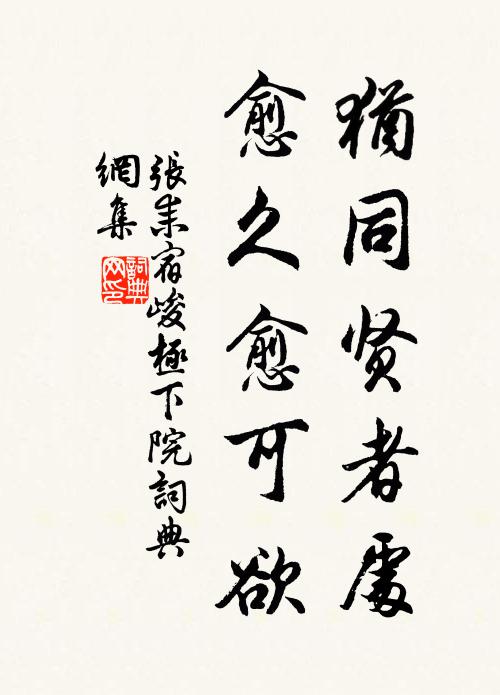 猶同贤者處
愈久愈可欲
張耒宿峻極下院詞典
網集
詞典
网印